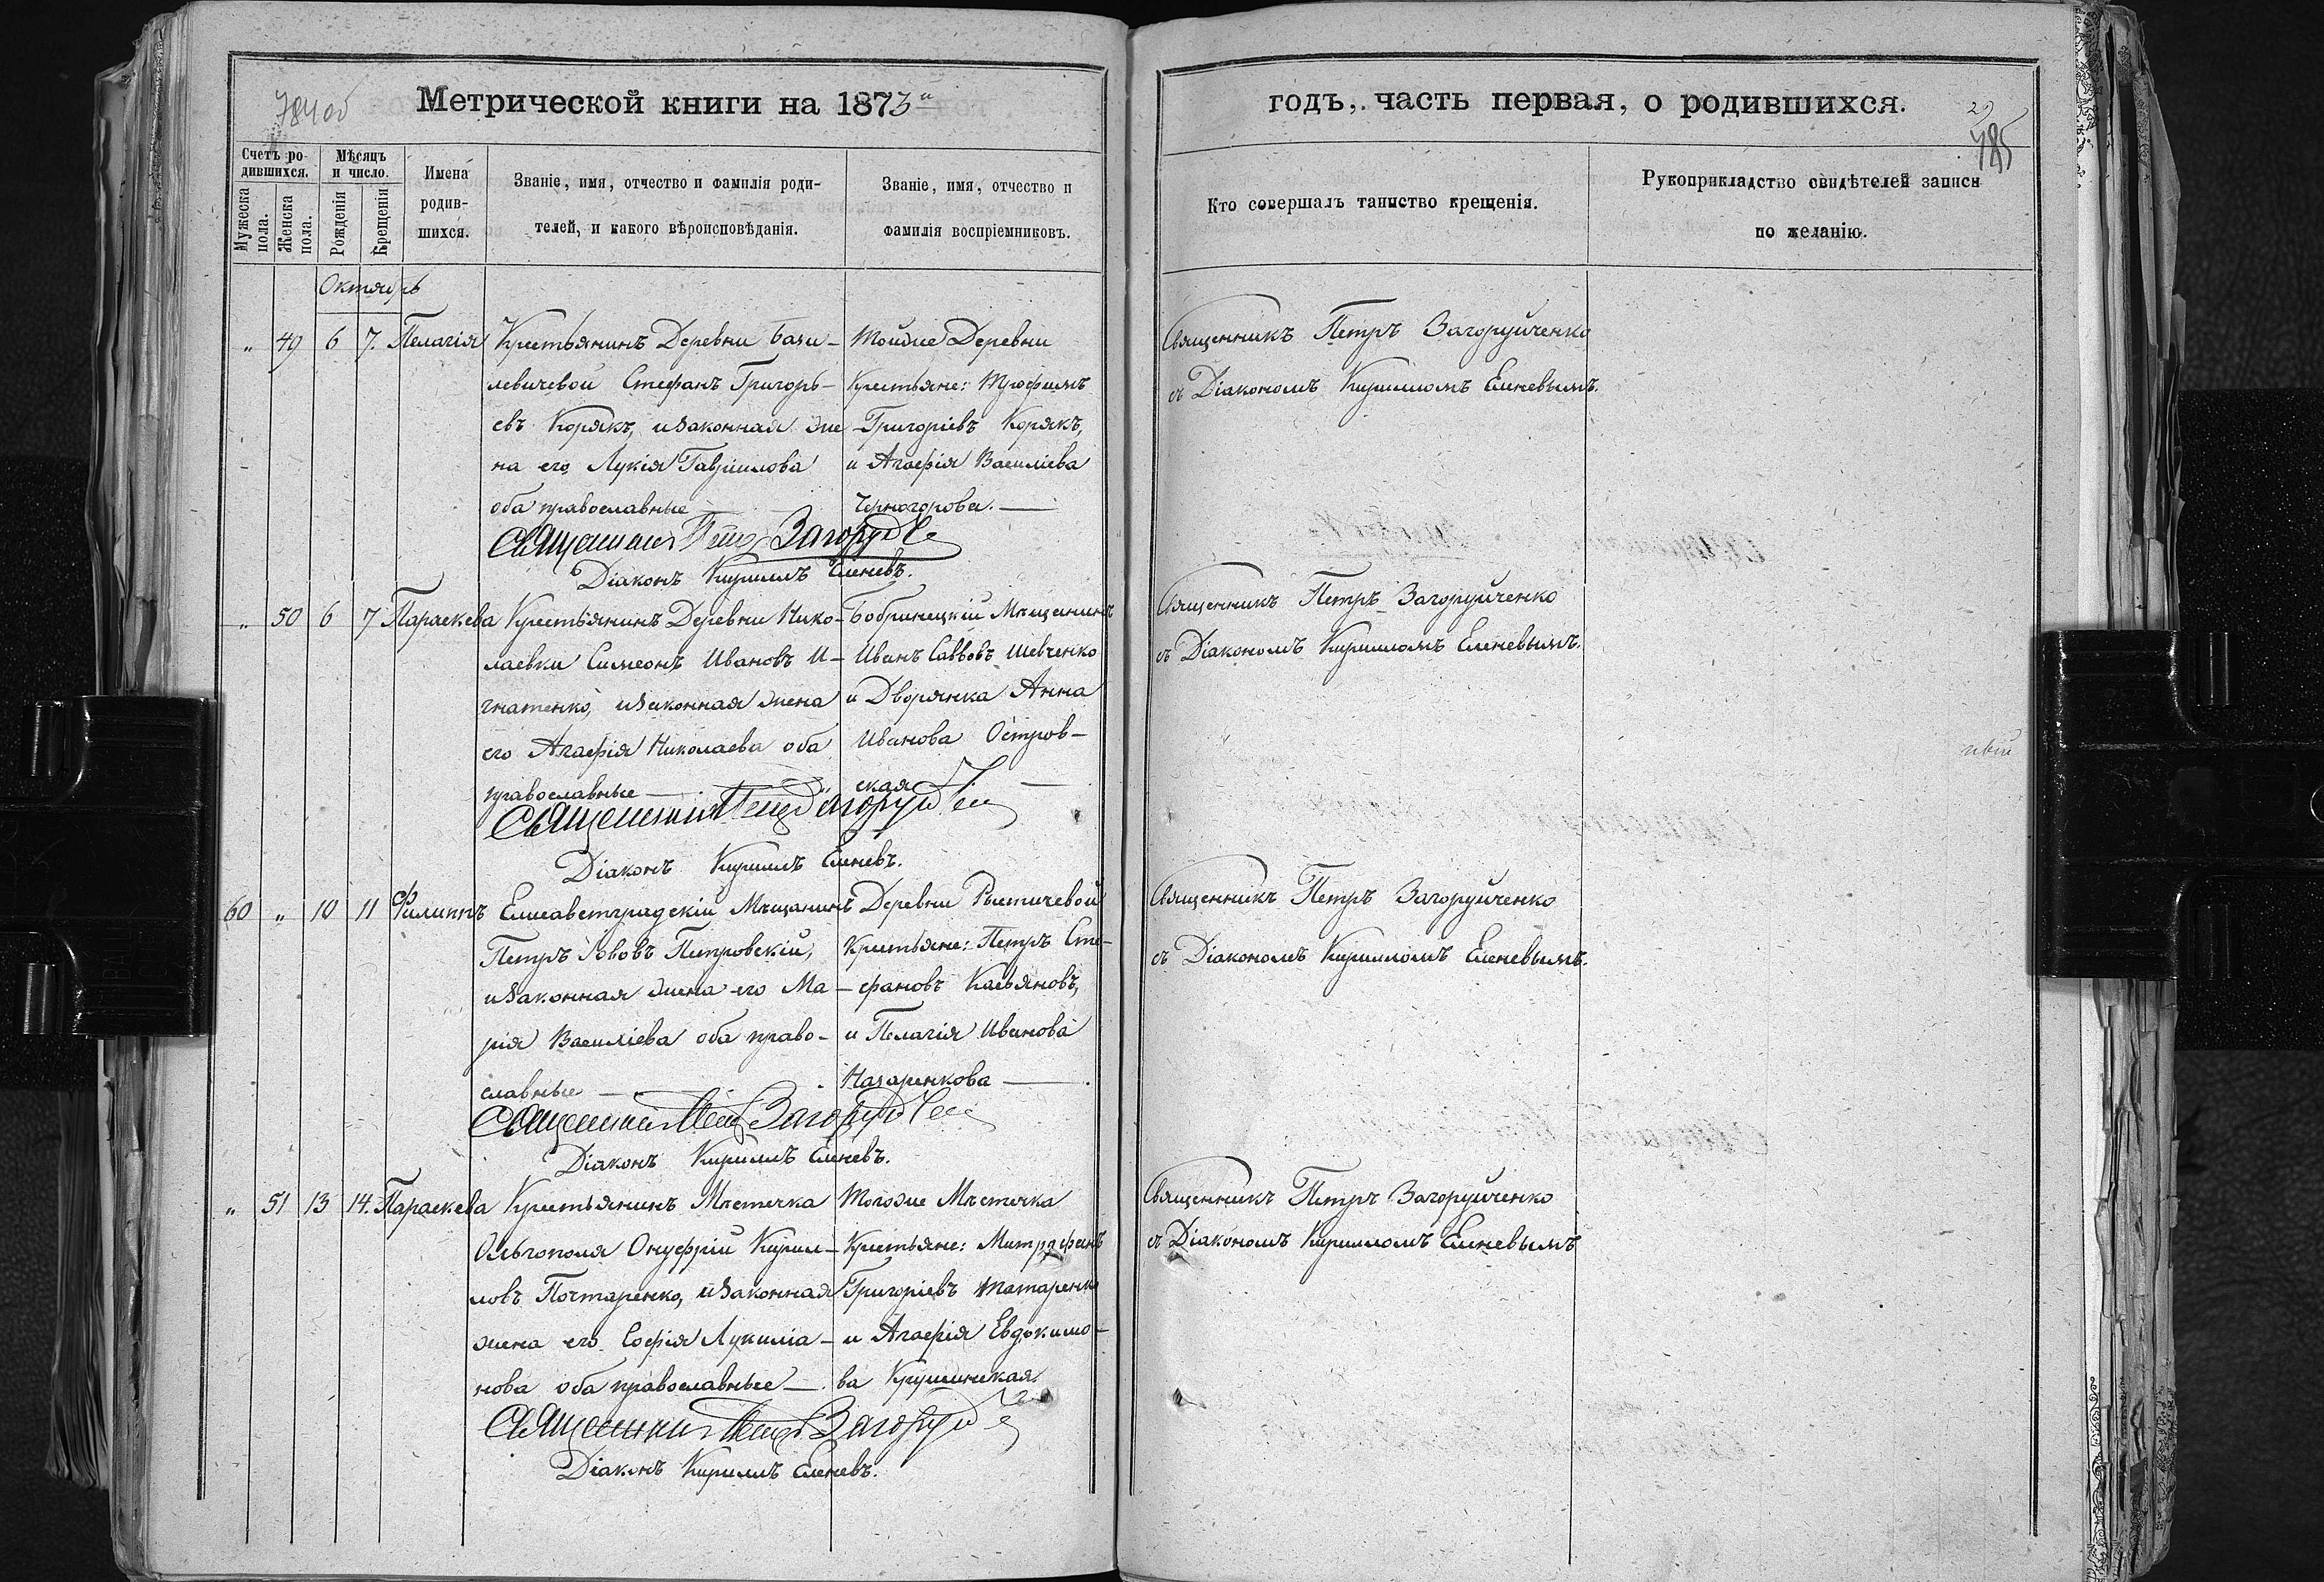 784об
Метрической книги на 1873й
Счетъ ро-
дившихся.
Мужеска
пола.
Женска
пола.
Мѣсяцъ
и число.
Рожденія
Крещенія
Имена
родив-
шихся.
Званіе, имя, отчество и фамилія роди-
телей, и какого вѣроисповѣданія.
Званіе, имя, отчество и
фамилія воспріемниковъ.
Октябрь
„ 49 6 7. Пелагія
Крестьянинъ Деревни Бази-
левичевой Стефанъ Григорь-
евъ Корякъ, и законная же
на его Лукія Гавриилова
оба православные
Тойже Деревни
Крестьяне: Трофимъ
Григоріевъ Корякъ,
и Агафія Василіева
Черногорова.
Священникъ Петръ Загоруйче
Діаконъ Кириллъ Еленевъ.
„ 50 6 7 Параскева
Крестьянинъ Деревни Нико-
лаевки Симеонъ Ивановъ И-
гнатенко, и законная жена
его Агафія Николаева оба
православные
Бобринецкій Мѣщанинъ
Иванъ Саввовъ Шевченко
и Дворянка Анна
Иванова Остров-
ская
Священникъ Петръ Загоруйче
Діаконъ Кириллъ Еленевъ.
60 „ 10 11 Филиппъ
Елисаветградскій Мѣщанинъ
Петръ Іововъ Петровскій,
и законная жена его Ма-
рія Василіева оба право-
славные
Деревни Рыстичевой
Крестьяне: Петръ Сте-
фановъ Касьяновъ,
и Пелагія Иванова
Назаренкова
Священникъ Петръ Загоруйче
Діаконъ Кириллъ Еленевъ.
„ 51 13 14. Параскева
Крестьянинъ Мѣстечка
Ольгополя Онуфрій Кирил-
ловъ Почтаренко, и законная
жена его Софія Лукиліа-
нова оба православные
Тогоже Мѣстечка
Крестьяне: Митрофанъ
Григоріевъ Татаренко
и Агафія Евдокимо-
ва Крушинская.
Священникъ Петръ Загоруйче
Діаконъ Кириллъ Еленевъ.
годъ, часть первая, о родившихся.
29
785
Кто совершалъ таинство крещенія.
Рукоприкладство свидѣтелей записи
по желанію.
Священникъ Петръ Загоруйченко
съ Діакономъ Кирилломъ Еленевымъ.
Священникъ Петръ Загоруйченко
съ Діакономъ Кирилломъ Еленевымъ.
Священникъ Петръ Загоруйченко
съ Діакономъ Кирилломъ Еленевымъ.
Священникъ Петръ Загоруйченко
съ Діакономъ Кирилломъ Еленевымъ